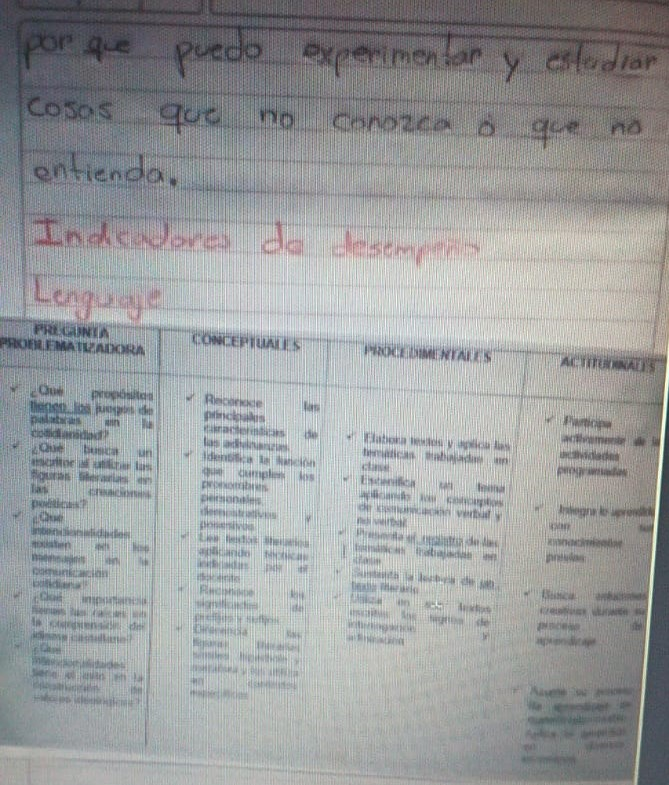 por que puedo experimentar y estudiar
cosas que no conozca ó que no
entienda.
Indicadores de desempeño
Lenguaje
PREGUNTA
PROBLEMATIZADORA
CONCEPTUALES
PROCEDIMENTALES
ACTITUDINALES
¿Qué propósitos
tienen los juegos de
palabras en la
cotidianidad?
¿Qué busca un
escritor al utilizar las
figuras literarias en
las creaciones
poéticas?
¿Qué
intencionalidades
existen en los
mensajes en la
comunicación
cotidiana?
¿Qué importancia
tienen las raíces en
la comprensión del
idioma castellano?
¿Que
intencionalidades
tiene el autor en la
construcción de
Reconoce las
principales
características de
las adivinanzas
Identifica la función
que cumplen los
pronombres
personales
demostrativos y
posesivos
Lee textos literarios
aplicando técnicas
indicadas por el
docente
Reconoce los
significados de
prefijos y sufijos
Diferencia las
figuras literarias
Elabora textos y aplica las
temáticas trabajadas en
clase
Escenifica un tema
aplicando los conceptos
de comunicación verbal y
no verbal
Presenta el registro de las
temáticas trabajadas en
clase
Sustenta la lectura de un
texto literario
Utiliza en sus textos
escritos los signos de
interrogación y
admiración
Participa
activamente de la
actividades
programadas
Integra lo aprendido
con
conocimientos
previos
Busca
creativas durante su
proceso de
aprendizaje